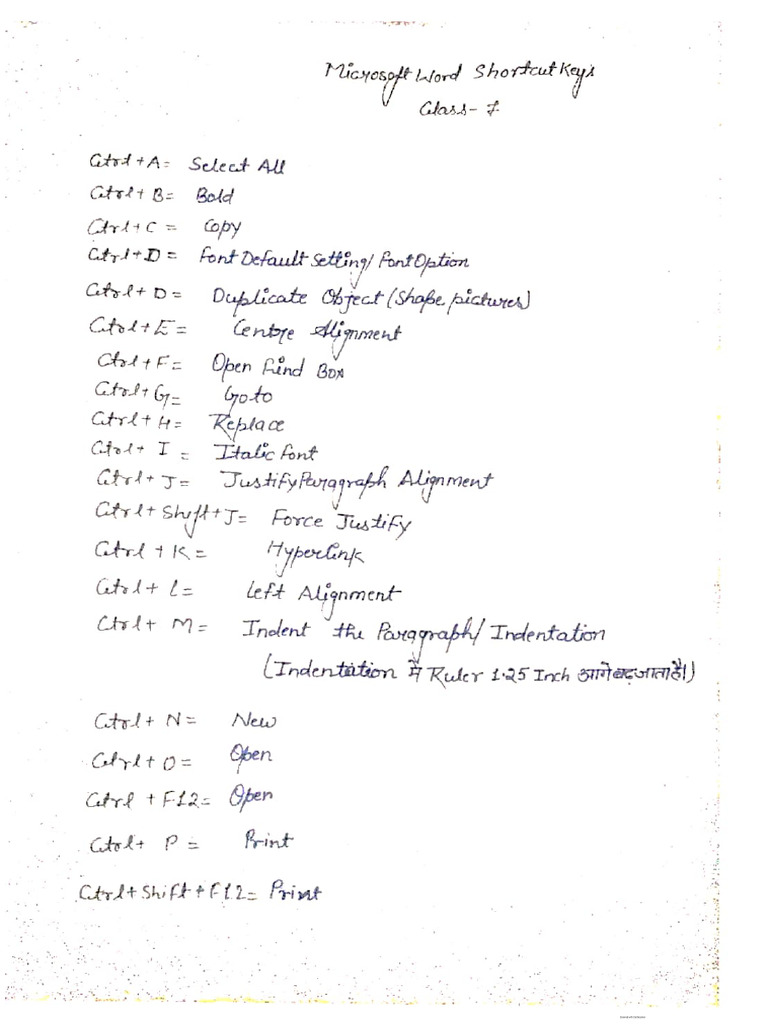 Microsoft Word Shortcut Keys
Class-7
Ctrl+A= Select All
Ctrl+B= Bold
Ctrl+C= Copy
Ctrl+D= Font Default Setting/Font Option
Ctrl+D= Duplicate Object (Shape pictures)
Ctrl+E= Centre Alignment
Ctrl+F= Open Find Box
Ctrl+G= Goto
Ctrl+H= Replace
Ctrl+I= Italic Font
Ctrl+J= Justify Paragraph Alignment
Ctrl+Shift+J= Force Justify
Ctrl+K= Hyperlink
Ctrl+L= Left Alignment
Ctrl+M= Indent the Paragraph/Indentation
(Indentation में Ruler 1.25 Inch आगे बढ़ जाता है।)
Ctrl+N= New
Ctrl+O= Open
Ctrl+F12= Open
Ctrl+P= Print
Ctrl+Shift+F12= Print